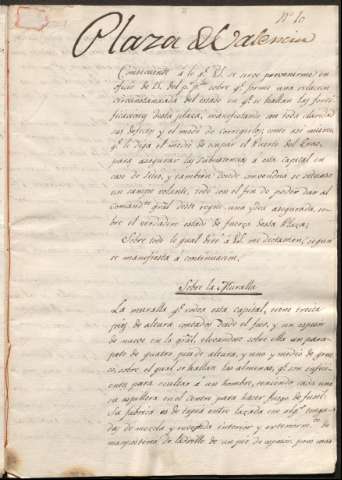 Nº 10
Plaza de Valencia
Consecuente á lo qe. V.S. se sirve prevenirme en
oficio de 15. del pº. pdo. sobre qe. forme una relacion
circunstanciada del estado en qe. se hallan las forti-
ficaciones desta plaza, manifestando con toda claridad
sus defectos y el modo de corregirlos; como asi mismo
qe. le diga el medio de ocupar el Puerto del Grao,
para asegurar las subsistencias a esta capital en
caso de sitio, y tambien donde convendria se situase
un campo volante, todo con el fin de poder dar al
comandte. gral. deste reyno una ydea asegurada, so-
bre el verdadero estado de fuerza desta Plaza;
Sobre todo lo qual diré á V.S. mi dictamen, segun
se manifiesta á continuacion.
Sobre la Muralla
La muralla qe. rodea esta capital, tiene treinta
pies de altura contados desde el foso, y un espesor
de nueve en lo gral. elevandose sobre ella un para-
peto de quatro pies de altura, y uno y medio de grue-
so, sobre el qual se hallan las almenas, qe. son suficien-
tes para ocultar á un hombre, teniendo cada una
su aspillera en el centro para hacer fuego de fusil.
Su fabrica es de tapia entre lazada con algs. tonga-
das de mezcla y revestida interior y exteriormte. de
mamposteria de ladrillo de un pie de espesor, pero una